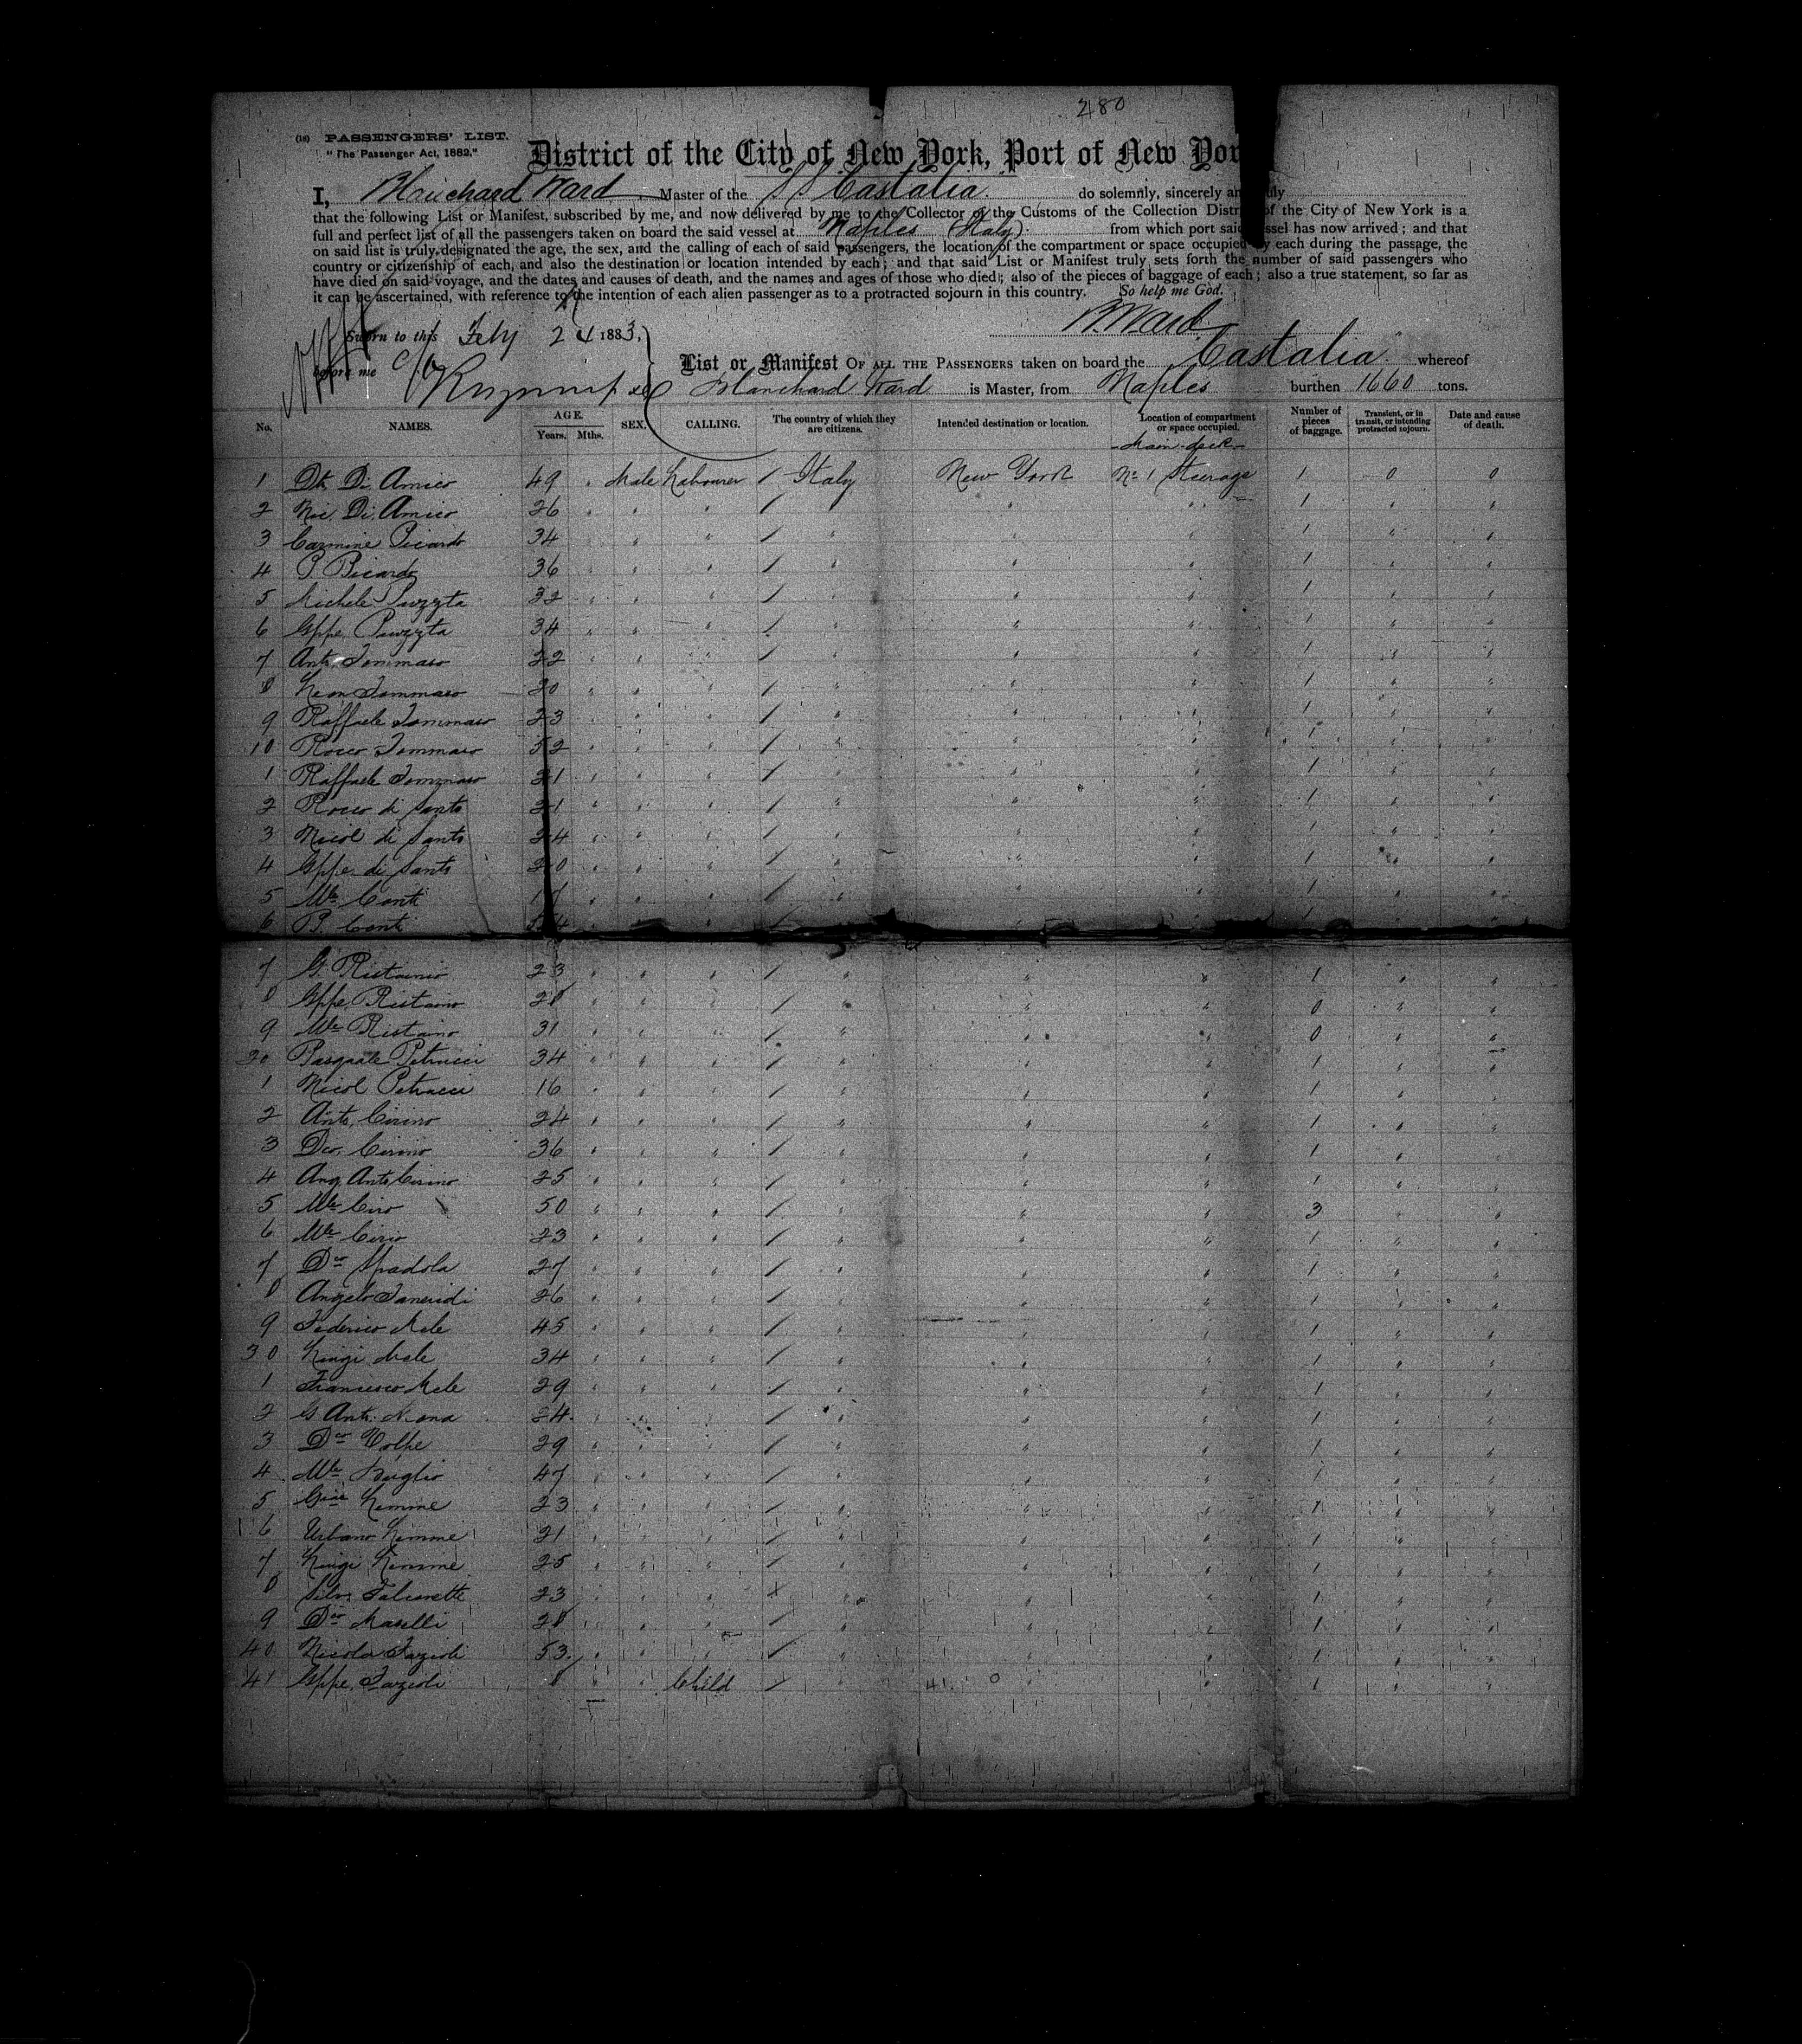 280
(18) PASSENGERS' LIST.
"The Passenger Act, 1882."
District of the City of New York, Port of New Yor
I, Blanchard Ward Master of the SS Castalia. do solemnly, sincerely an uly
that the following List or Manifest, subscribed by me, and now delivered by me to the Collector of the Customs of the Collection Distr of the City of New York is a
full and perfect list of all the passengers taken on board the said vessel at Naples (Italy). from which port said essel has now arrived; and that
on said list is truly designated the age, the sex, and the calling of each of said passengers, the location of the compartment or space occupied by each during the passage, the
country or citizenship of each, and also the destination or location intended by each; and that said List or Manifest truly sets forth the number of said passengers who
have died on said voyage, and the dates and causes of death, and the names and ages of those who died; also of the pieces of baggage of each; also a true statement, so far as
it can be ascertained, with reference to the intention of each alien passenger as to a protracted sojourn in this country. So help me God.
B. Ward
Sworn to this Feby 24 1883,
before me
List or Manifest OF ALL THE PASSENGERS taken on board the Castalia. whereof
Blanchard Ward is Master, from Naples burthen 1660 tons.
No. NAMES. AGE. Years. Mths. SEX. CALLING. The country of which they are citizens. Intended destination or location. Location of compartment or space occupied. Number of pieces of baggage. Transient, or in transit, or intending protracted sojourn. Date and cause of death.
Main-deck
1 Di Amico 49 " Male Labourer / Italy New York No 1 Steerage 1 0 0
2 Nic. Di Amico 26 " " " / " " " 1 " "
3 Carmine Picardo 34 " " " / " " " 1 " "
4 P. Picardo 36 " " " / " " " 1 " "
5 Michele 32 " " " / " " " 1 " "
6 Gppe. 34 " " " / " " " 1 " "
7 Anto. Tommaso 22 " " " / " " " 1 " "
8 Leon Tommaso 20 " " " / " " " 1 " "
9 Raffaele Tommaso 23 " " " / " " " 1 " "
10 Rocco Tommaso 52 " " " / " " " 1 " "
1 Raffaele Tommaso 21 " " " / " " " 1 " "
2 Rocco di Santo 21 " " " / " " " 1 " "
3 Nicol di Santo 24 " " " / " " " 1 " "
4 Gppe. di Santo 20 " " " / " " " 1 " "
5 Mle Conti 17 " " " / " " " 1 " "
6 P. Conti " " " / " " " 1 " "
7 G. Ristaino 23 " " " / " " " 1 " "
8 Gppe Ristaino 28 " " " / " " " 0 " "
9 Mle Ristaino 31 " " " / " " " 0 " "
20 Pasquale Petrucci 34 " " " / " " " 1 " "
1 Nicol Petrucci 16 " " " / " " " 1 " "
2 Anto. Cirino 24 " " " / " " " 1 " "
3 Dco. Cirino 36 " " " / " " " 1 " "
4 Ang. Anto Cirino 25 " " " / " " " 1 " "
5 Mle Ciro 50 " " " / " " " 3 " "
6 Mle Cirio 23 " " " / " " " 1 " "
7 Dco Spadola 27 " " " / " " " 1 " "
8 Angelo 26 " " " / " " " 1 " "
9 Federico Mele 45 " " " / " " " 1 " "
30 Luigi Mele 34 " " " / " " " 1 " "
1 Francesco Mele 29 " " " / " " " 1 " "
2 G Anto. 24 " " " / " " " 1 " "
3 Dco Volpe 29 " " " / " " " 1 " "
4 Mle 47 " " " / " " " 1 " "
5 Lemme 23 " " " / " " " 1 " "
6 Urbano Lemme 21 " " " / " " " 1 " "
7 Luigi Lemme 25 " " " / " " " 1 " "
8 Silv. 23 " " " x " " " 1 " "
9 Dco Maselli 28 " " " / " " " 1 " "
40 Nicola Fazioli 53 " " " / " " " 1 " "
41 Gppe. Fazioli 8 " " Child / " 41 0 " " 1 " "